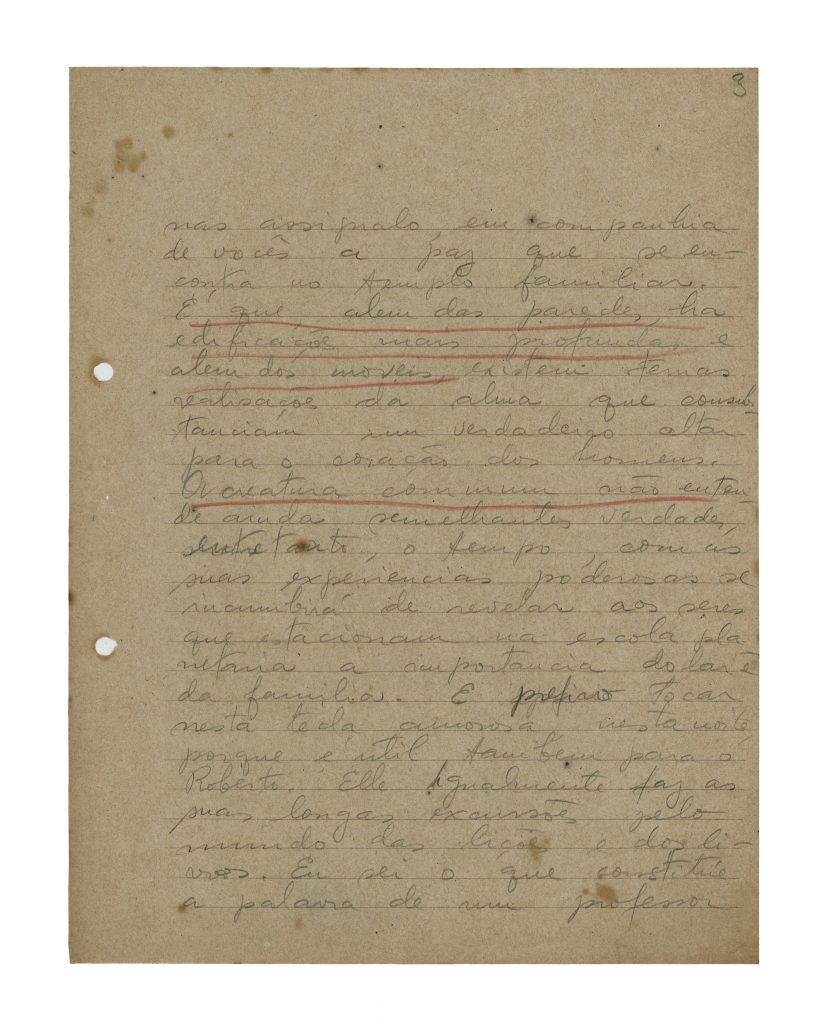 3
nas assignalo, em companhia
de vocês a paz que se en-
contra no templo familiar.
E, que, alem das paredes, ha
edificações mais profundas e
alem dos moveis, existem ternas
realisações da alma que consub-
tanciam um verdadeiro altar
para o coração dos homens.
A creatura commum não enten-
de ainda semelhantes verdades,
entretanto, o tempo, com as
suas experiencias poderosas se
incumbirá de revelar aos seres
que estacionam na escola pla
netaria a importancia do lar e
da familia. E prefiro tocar
nesta tecla amorosa nesta noite,
porque é util tambem para o
Roberto. Elle igualmente faz as
suas longas excursões pelo
mundo das lições e dos li-
vros. Eu sei o que constitúe
a palavra de um professor